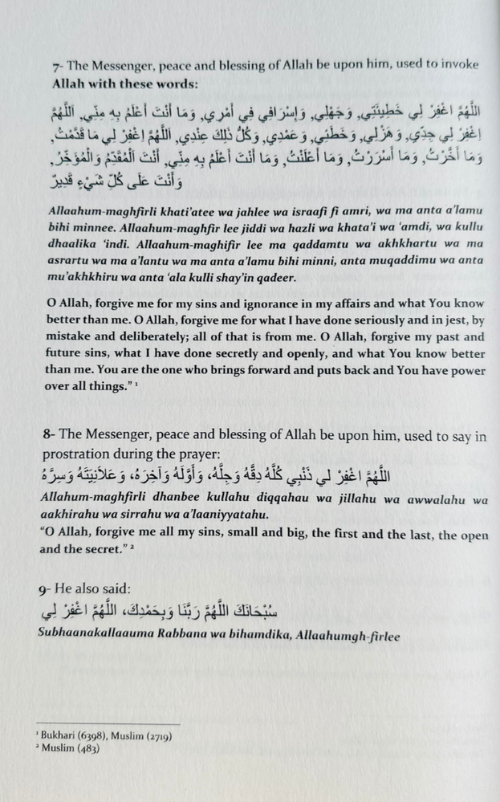 7- The Messenger, peace and blessing of Allah be upon him, used to invoke
Allah with these words:
اللَّهُمَّ اغْفِرْ لِي خَطِيئَتِي, وَجَهْلِي, وَإِسْرَافِي فِي أَمْرِي, وَمَا أَنْتَ أَعْلَمُ بِهِ مِنِّي, اللَّهُمَّ
اِغْفِرْ لِي جِدِّي, وَهَزْلِي, وَخَطَئِي, وَعَمْدِي, وَكُلُّ ذَلِكَ عِنْدِي, اَللَّهُمَّ اِغْفِرْ لِي مَا قَدَّمْتُ,
وَمَا أَخَّرْتُ, وَمَا أَسْرَرْتُ, وَمَا أَعْلَنْتُ, وَمَا أَنْتَ أَعْلَمُ بِهِ مِنِّي, أَنْتَ الْمُقَدِّمُ وَالْمُؤَخِّرُ,
وَأَنْتَ عَلَى كُلِّ شَيْءٍ قَدِيرٌ
Allaahum-maghfirli khati'atee wa jahlee wa israafi fi amri, wa ma anta a'lamu
bihi minnee. Allaahum-maghfir lee jiddi wa hazli wa khata'i wa 'amdi, wa kullu
dhaalika 'indi. Allaahum-maghifir lee ma qaddamtu wa akhkhartu wa ma
asrartu wa ma a'lantu wa ma anta a'lamu bihi minni, anta muqaddimu wa anta
mu'akhkhiru wa anta 'ala kulli shay'in qadeer.
O Allah, forgive me for my sins and ignorance in my affairs and what You know
better than me. O Allah, forgive me for what I have done seriously and in jest, by
mistake and deliberately; all of that is from me. O Allah, forgive my past and
future sins, what I have done secretly and openly, and what You know better
than me. You are the one who brings forward and puts back and You have power
over all things." ¹
8- The Messenger, peace and blessing of Allah be upon him, used to say in
prostration during the prayer:
اللَّهُمَّ اغْفِرْ لِي ذَنْبِي كُلَّهُ دِقَّهُ وَجِلَّهُ، وَأَوَّلَهُ وَآخِرَهُ، وَعَلَانِيَتَهُ وَسِرَّهُ
Allahum-maghfirli dhanbee kullahu diqqahau wa jillahu wa awwalahu wa
aakhirahu wa sirrahu wa a'laaniyyatahu.
"O Allah, forgive me all my sins, small and big, the first and the last, the open
and the secret." ²
9- He also said:
سُبْحَانَكَ اللَّهُمَّ رَبَّنَا وَبِحَمْدِكَ، اللَّهُمَّ اغْفِرْ لِي
Subhaanakallaauma Rabbana wa bihamdika, Allaahumgh-firlee
¹ Bukhari (6398), Muslim (2719)
² Muslim (483)